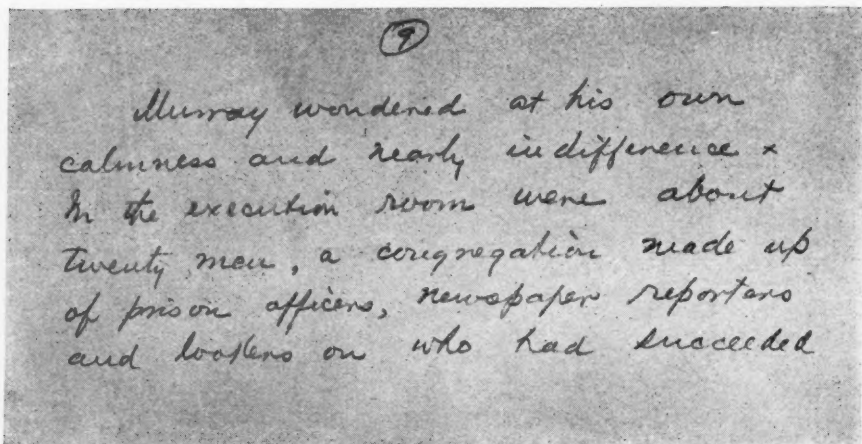 9
Murray wondered at his own
calmness and nearly indifference x
In the execution room were about
twenty men, a congregation made up
of prison officers, newspaper reporters
and lookers on who had succeeded